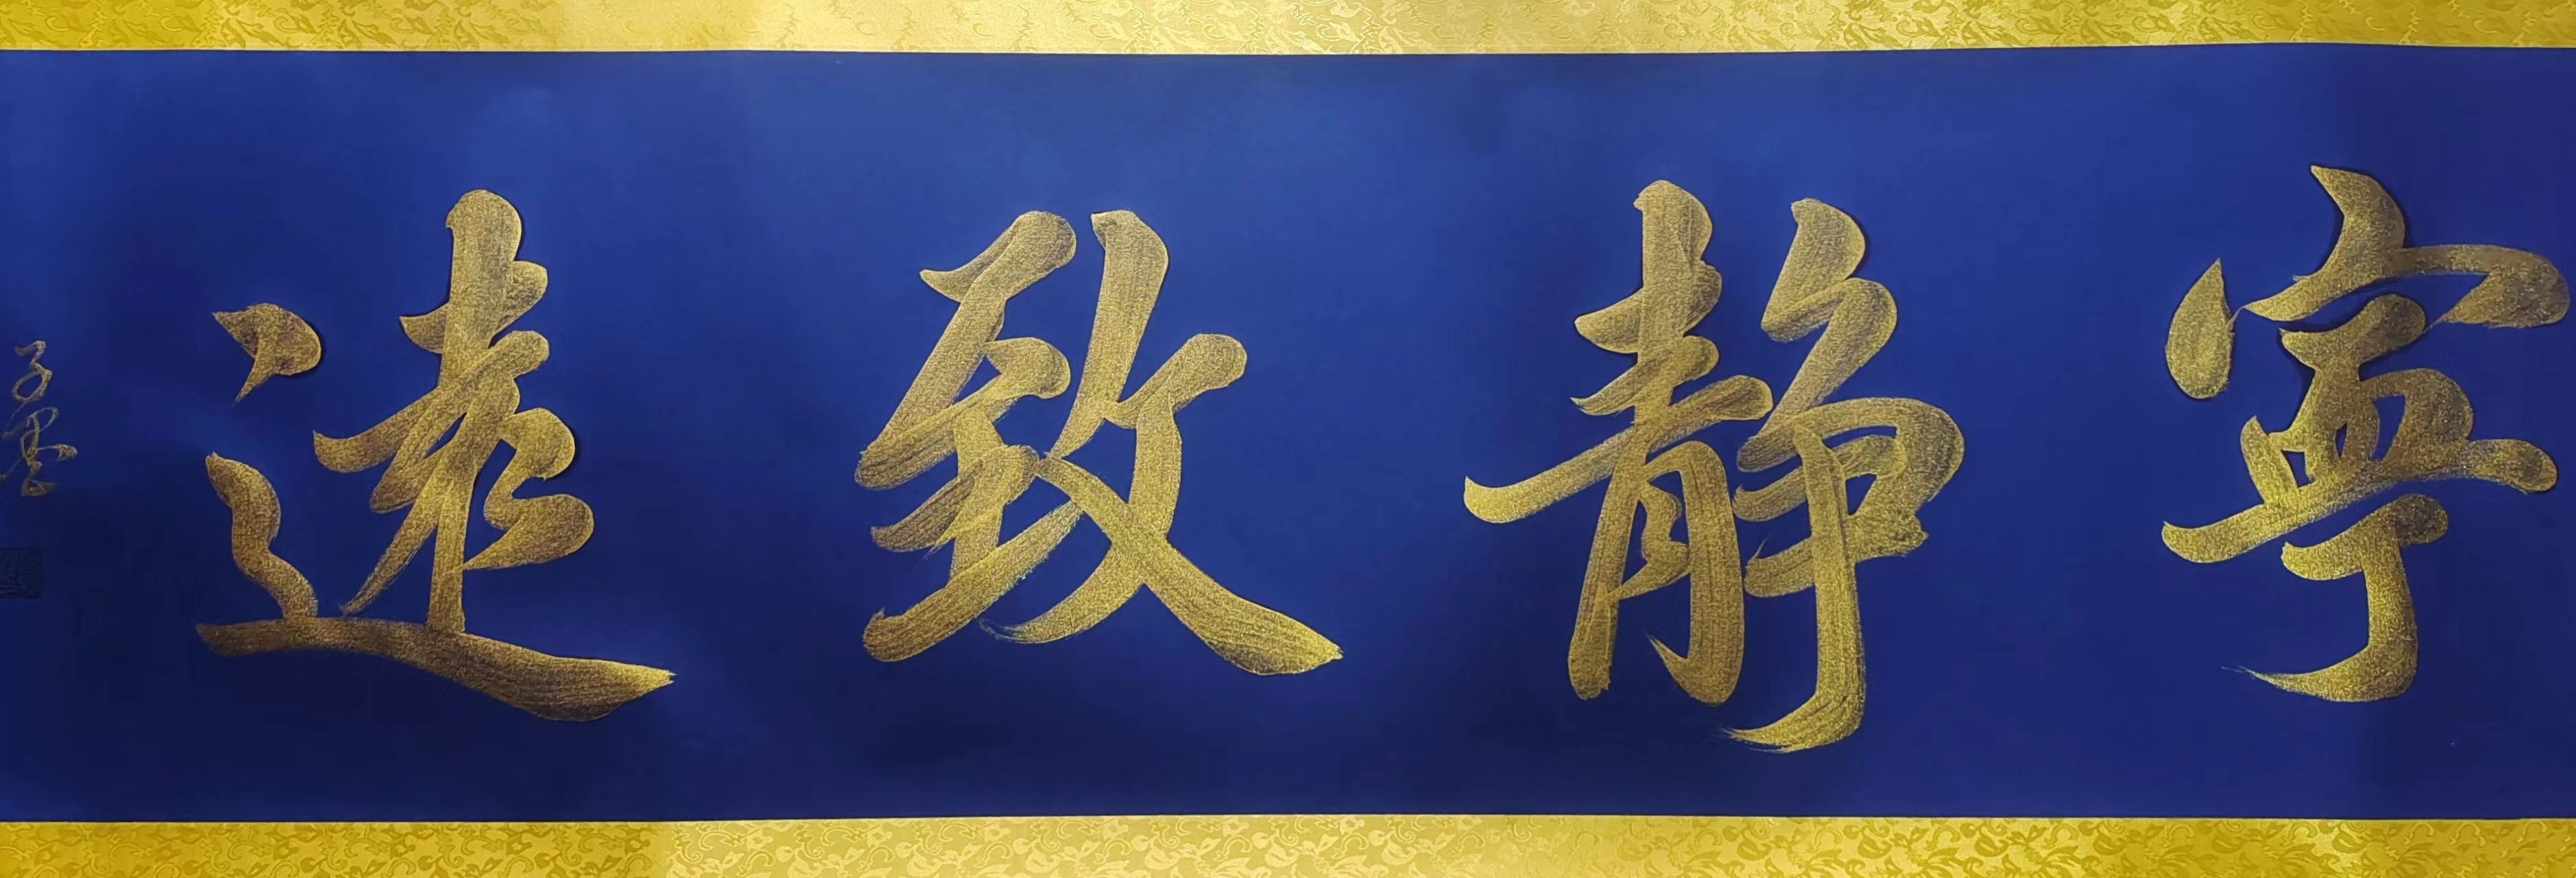 寧靜致遠
子墨